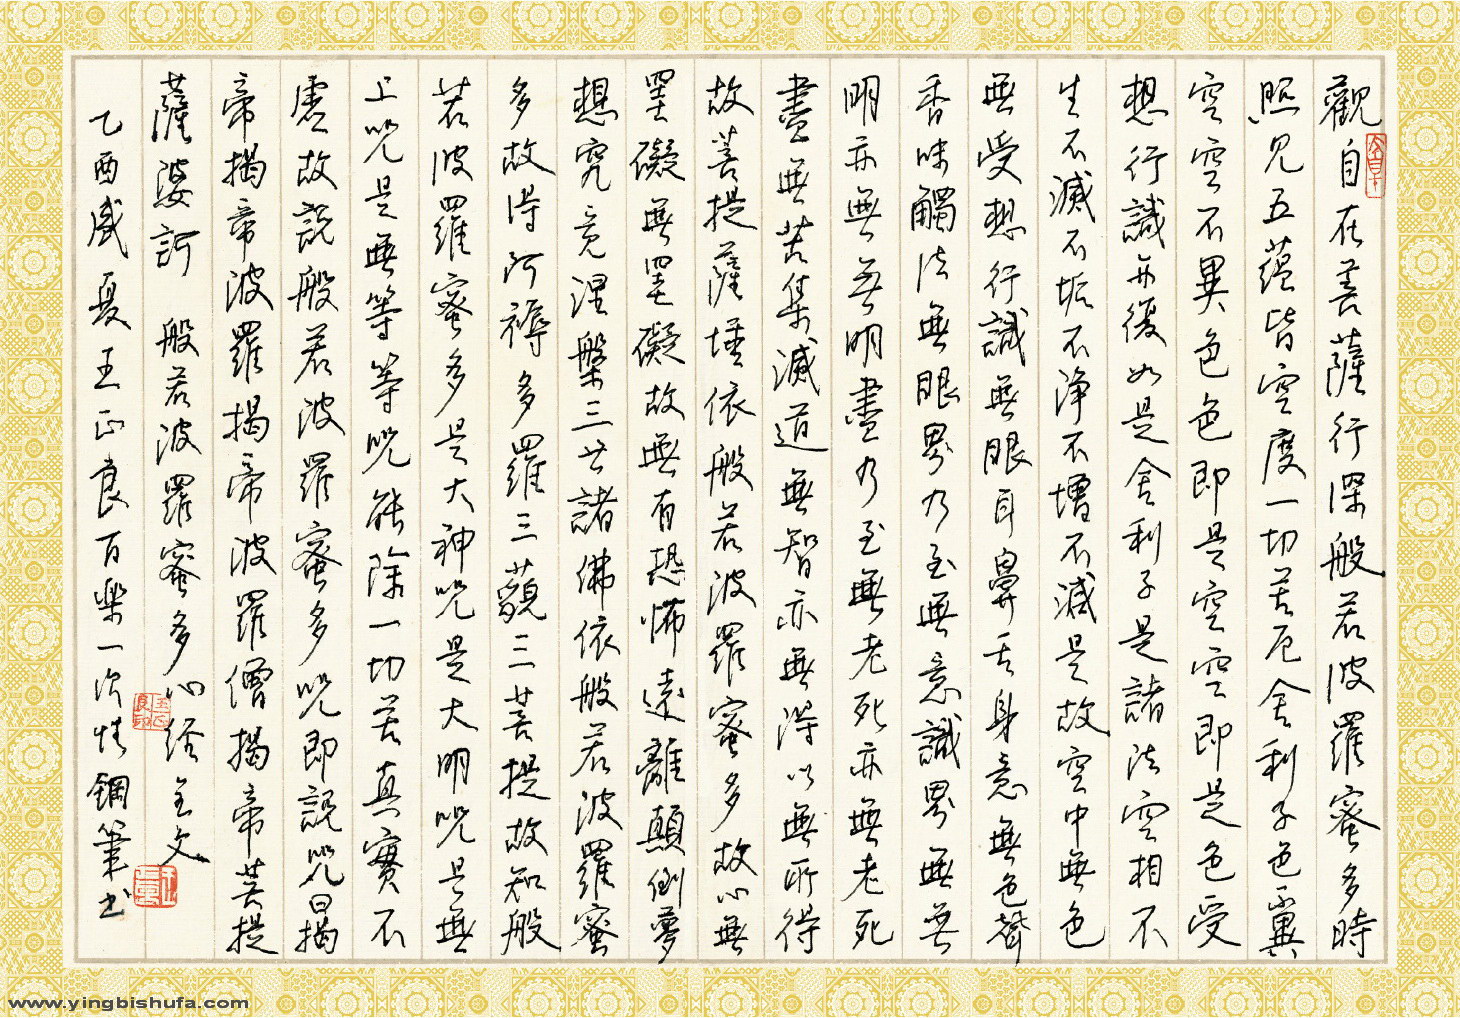 觀自在菩薩行深般若波羅蜜多時
照見五蘊皆空度一切苦厄舍利子色不異
空空不異色色即是空空即是色受
想行識亦復如是舍利子是諸法空相不
生不滅不垢不淨不增不減是故空中無色
無受想行識無眼耳鼻舌身意無色聲
香味觸法無眼界乃至無意識界無無
明亦無無明盡乃至無老死亦無老死
盡無苦集滅道無智亦無得以無所得
故菩提薩埵依般若波羅蜜多故心無
罣礙無罣礙故無有恐怖遠離顛倒夢
想究竟涅槃三世諸佛依般若波羅蜜
多故得阿褥多羅三藐三菩提故知般
若波羅蜜多是大神咒是大明咒是無
上咒是無等等咒能除一切苦真實不
虛故說般若波羅蜜多咒即說咒曰揭
帝揭帝波羅揭帝波羅僧揭帝菩提
薩婆訶 般若波羅蜜多心經全文
乙酉盛夏王正良百樂一次性鋼筆書
王正良印
www.yingbishufa.com